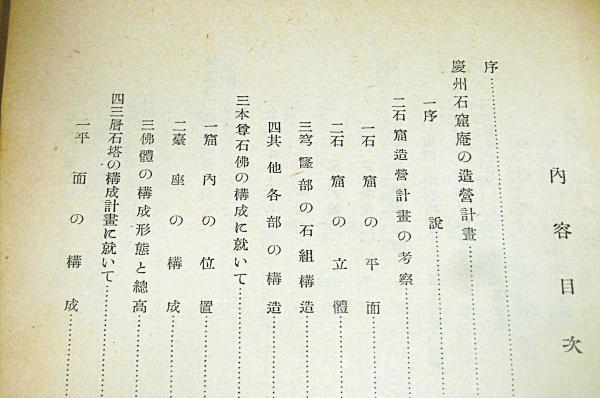 內容目次
序
慶州石窟庵の造營計畫
一序說
二石窟造營計畫の考察
一石窟の平面
二石窟の立體
三穹窿部の石組構造
四其他各部の構造
三本尊石佛の構成に就いて
一窟內の位置
二臺座の構成
三佛體の構成形態と總高
四三層石塔の構成計畫に就いて
一平面の構成